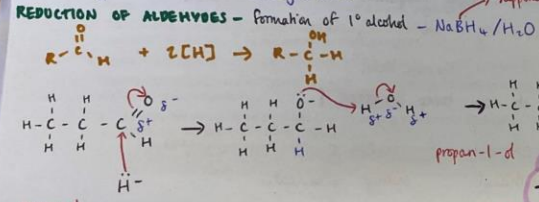 REDUCTION OF ALDEHYDES - formation of 1° alcohol - NaBH4/H2O
R - C + 2[H] → R - C - H
O
H
OH
H
H H O δ-
H - C - C - C δ+
H H H
H-
→ H - C - C - C - H
H H O-
H H H
H O H
δ+ δ- δ+
→ H - C -
H
H
propan-1-ol